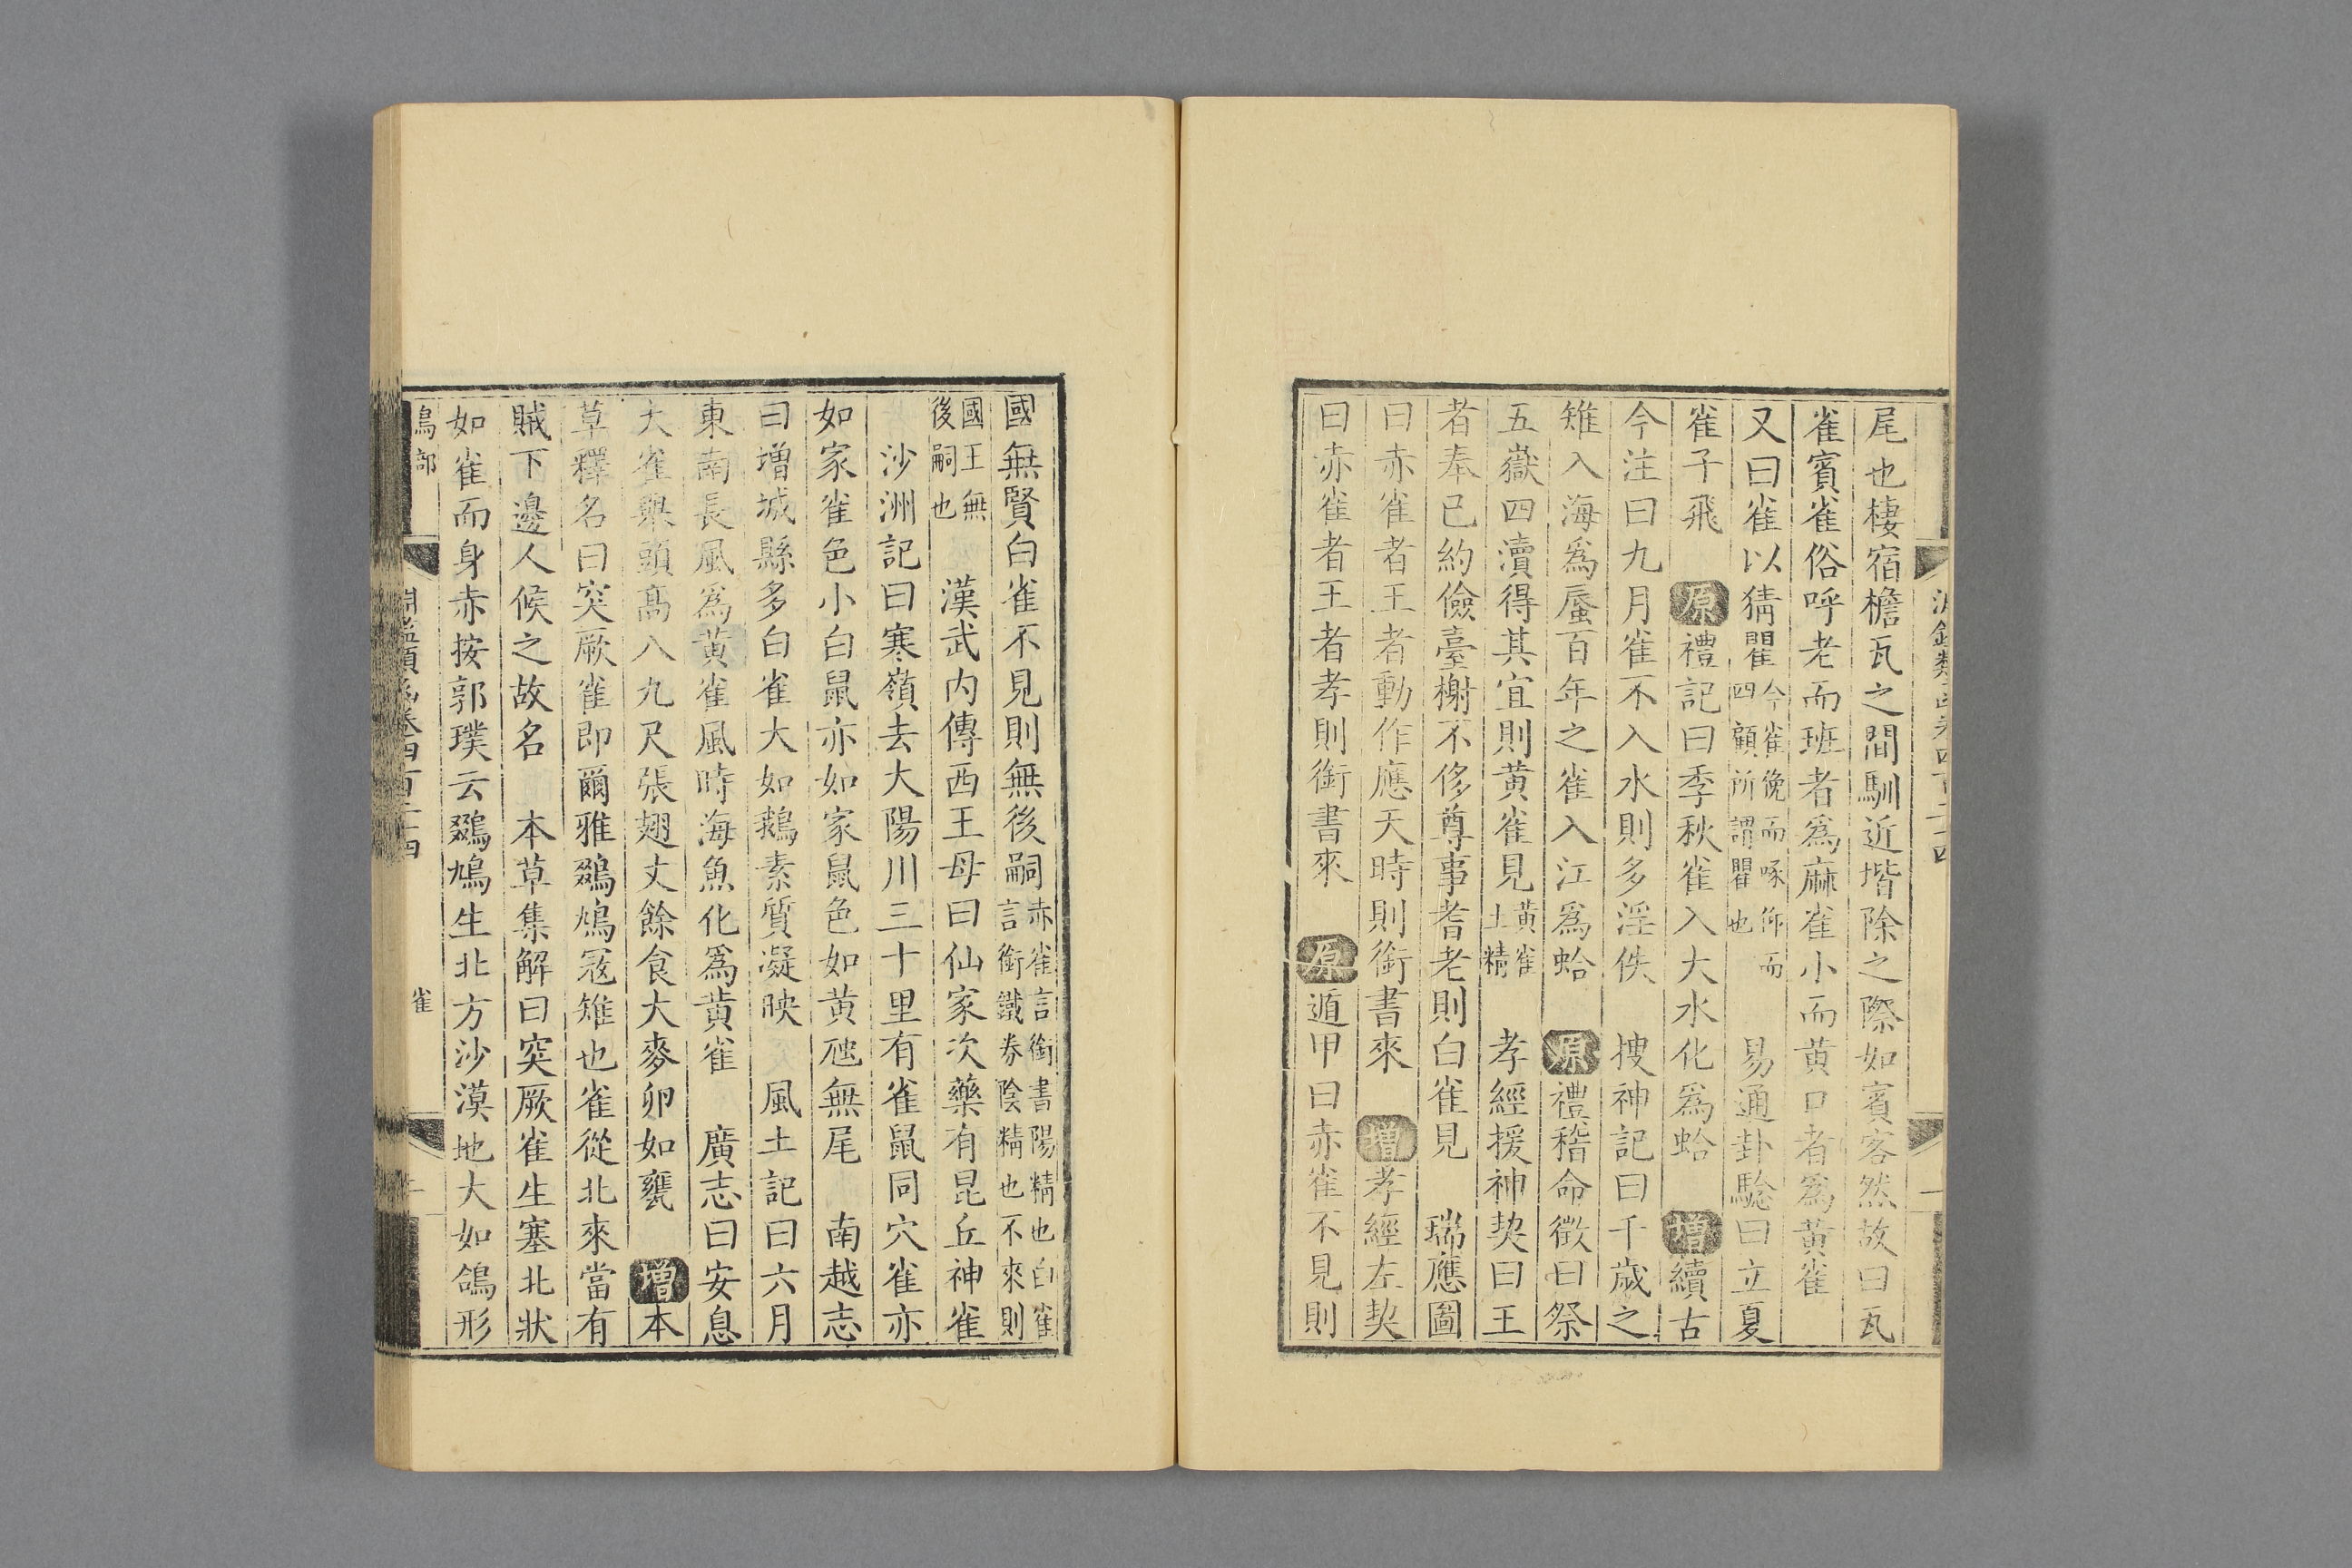 尾也棲宿檐瓦之間馴近堦除之際如賓客然故曰瓦
雀賓雀俗呼老而班者爲麻雀小而黄口者爲黄雀
又曰雀以猜瞿今雀俛而啄仰而四顧所謂瞿也 易通卦驗曰立夏
雀子飛 原禮記曰季秋雀入大水化爲蛤 增續古
今注曰九月雀不入水則多淫佚 搜神記曰千歲之
雉入海爲蜃百年之雀入江爲蛤 原禮稽命徵曰祭
五嶽四瀆得其宜則黄雀見黄雀土精 孝經援神契曰王
者奉已約儉臺榭不侈尊事耆老則白雀見 瑞應圖
曰赤雀者王者動作應天時則銜書來 增孝經左契
曰赤雀者王者孝則銜書來 原遁甲曰赤雀不見則
國無賢白雀不見則無後嗣赤雀言銜書陽精也白雀言銜鐵券陰精也不來則
國王無後嗣也 漢武内傳西王母曰仙家次藥有昆丘神雀
沙洲記曰寒嶺去大陽川三十里有雀鼠同穴雀亦
如家雀色小白鼠亦如家鼠色如黄䶅無尾 南越志
曰增城縣多白雀大如鵝素質凝映 風土記曰六月
東南長風爲黄雀風時海魚化爲黄雀 廣志曰安息
大雀舉頭高八九尺張翅丈餘食大麥卵如甕 增本
草釋名曰突厥雀即爾雅鵽鳩寇雉也雀從北來當有
賊下邊人候之故名 本草集解曰突厥雀生塞北狀
如雀而身赤按郭璞云鵽鳩生北方沙漠地大如鴿形
鳥部 淵鑑類函卷四百二十四 雀